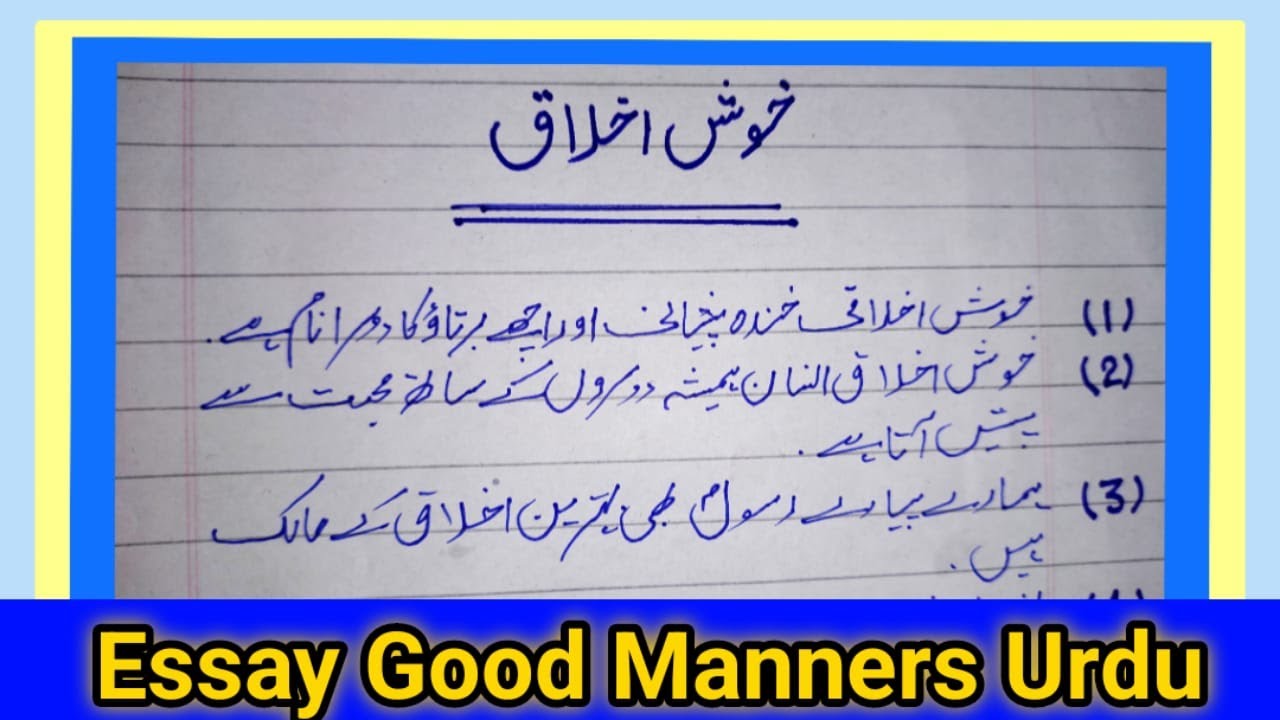 خوش اخلاق
(1) خوش اخلاقی خندہ پیشانی اور اچھے برتاؤ کا دوسرا نام ہے۔
(2) خوش اخلاق انسان ہمیشہ دوسروں کے ساتھ محبت سے
پیش آتا ہے۔
(3) ہمارے پیارے رسولؐ بھی بہترین اخلاق کے مالک
ہیں۔
Essay Good Manners Urdu